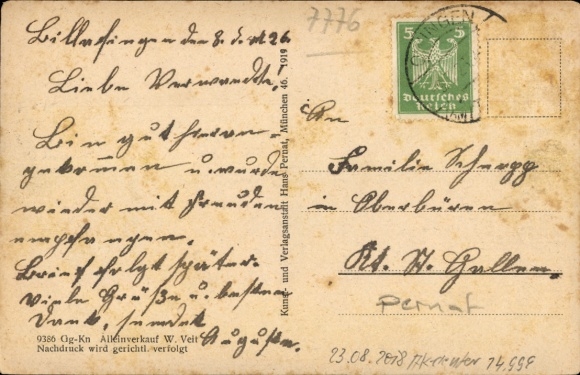 Billafingen den 8. d. Mt 26
Liebe Verwandte!
Bin gut heim-
gekommen u. wurde
wieder mit Freuden
empfangen.
Brief folgt später.
Viele Grüße u. besten
Dank, sendet
Auguste.
9386 Gg-Kn Alleinverkauf W. Veit
Nachdruck wird gerichtl. verfolgt
Kunst- und Verlagsanstalt Hans Pernat, München 46. 1919
7776
5 5
Deutsches
Reich
An
Familie Schnapp
in Oberbüren
Kt. St. Gallen.
Pernat
23.08.2018 14.99F